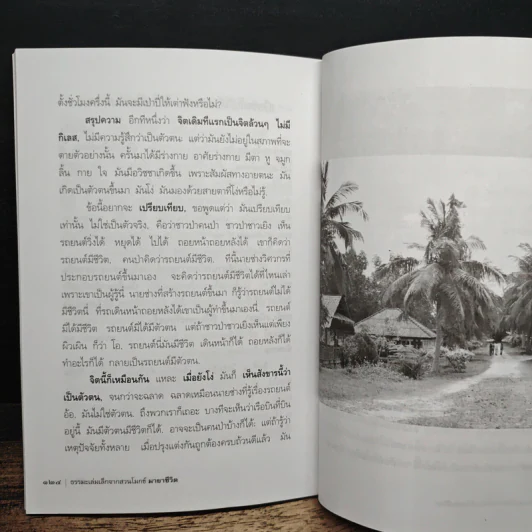 ตั้งชั่วโมงครึ่งนี้ มันจะมิเป่าปี่ให้เต่าฟังหรือไม่?
สรุปความ อีกทีหนึ่งว่า จิตเดิมทีแรกเป็นจิตล้วนๆ ไม่มี
กิเลส, ไม่มีความรู้สึกว่าเป็นตัวตน; แต่ว่ามันยังไม่อยู่ในสภาพที่จะ
ตายตัวอย่างนั้น ครั้นมาได้มีร่างกาย อาศัยร่างกาย มีตา หู จมูก
ลิ้น กาย ใจ มันมีอวิชชาเกิดขึ้น เพราะสัมผัสทางอายตนะ มัน
เกิดเป็นตัวตนขึ้นมา มันโง่ มันมองด้วยสายตาที่โง่หรือไม่รู้.
ข้อนี้อยากจะ เปรียบเทียบ, ขอพูดแต่ว่า มันเปรียบเทียบ
เท่านั้น ไม่ใช่เป็นตัวจริง, คือว่าชาวป่าคนป่า ชาวป่าชาวเยิง เห็น
รถยนต์วิ่งได้ หยุดได้ ไปได้ ถอยหน้าถอยหลังได้ เขาก็คิดว่า
รถยนต์มีชีวิต. คนป่าคิดว่ารถยนต์มีชีวิต. ทีนี้นายช่างวิศวกรที่
ประกอบรถยนต์ขึ้นมาเอง จะคิดว่ารถยนต์มีชีวิตได้ที่ไหนเล่า
เพราะเขาเป็นผู้รู้นี่ นายช่างที่สร้างรถยนต์ขึ้นมา ก็รู้ว่ารถยนต์ไม่ได้
มีชีวิตนี่ ที่รถเดินหน้าถอยหลังได้เขาเป็นผู้ทำขึ้นมาเองนี่. รถยนต์
มิได้มีชีวิต รถยนต์มิได้มีตัวตน แต่ถ้าชาวป่าชาวเยิงเห็นแต่เพียง
ผิวเผิน ก็ว่า โอ, รถยนต์นี่มันมีชีวิต เดินหน้าก็ได้ ถอยหลังก็ได้
ทำอะไรก็ได้ กลายเป็นรถยนต์มีตัวตน.
จิตนี้ก็เหมือนกัน แหละ เมื่อยังโง่ มันก็ เห็นสังขารนี้ว่า
เป็นตัวตน, จนกว่าจะฉลาด ฉลาดเหมือนนายช่างที่รู้เรื่องรถยนต์
อ้อ, มันไม่ใช่ตัวตน. ถึงพวกเราก็เถอะ บางทีจะเห็นว่าเรือบินที่บิน
อยู่นี้ มันมีตัวตนมีชีวิตก็ได้; อาจจะเป็นคนป่าบ้างก็ได้; แต่ถ้ารู้ว่า
เหตุปัจจัยทั้งหลาย เมื่อปรุงแต่งกันถูกต้องครบถ้วนดีแล้ว มัน
๑๒๘ | ธรรมะเล่มเล็กจากสวนโมกข์ มายาชีวิต